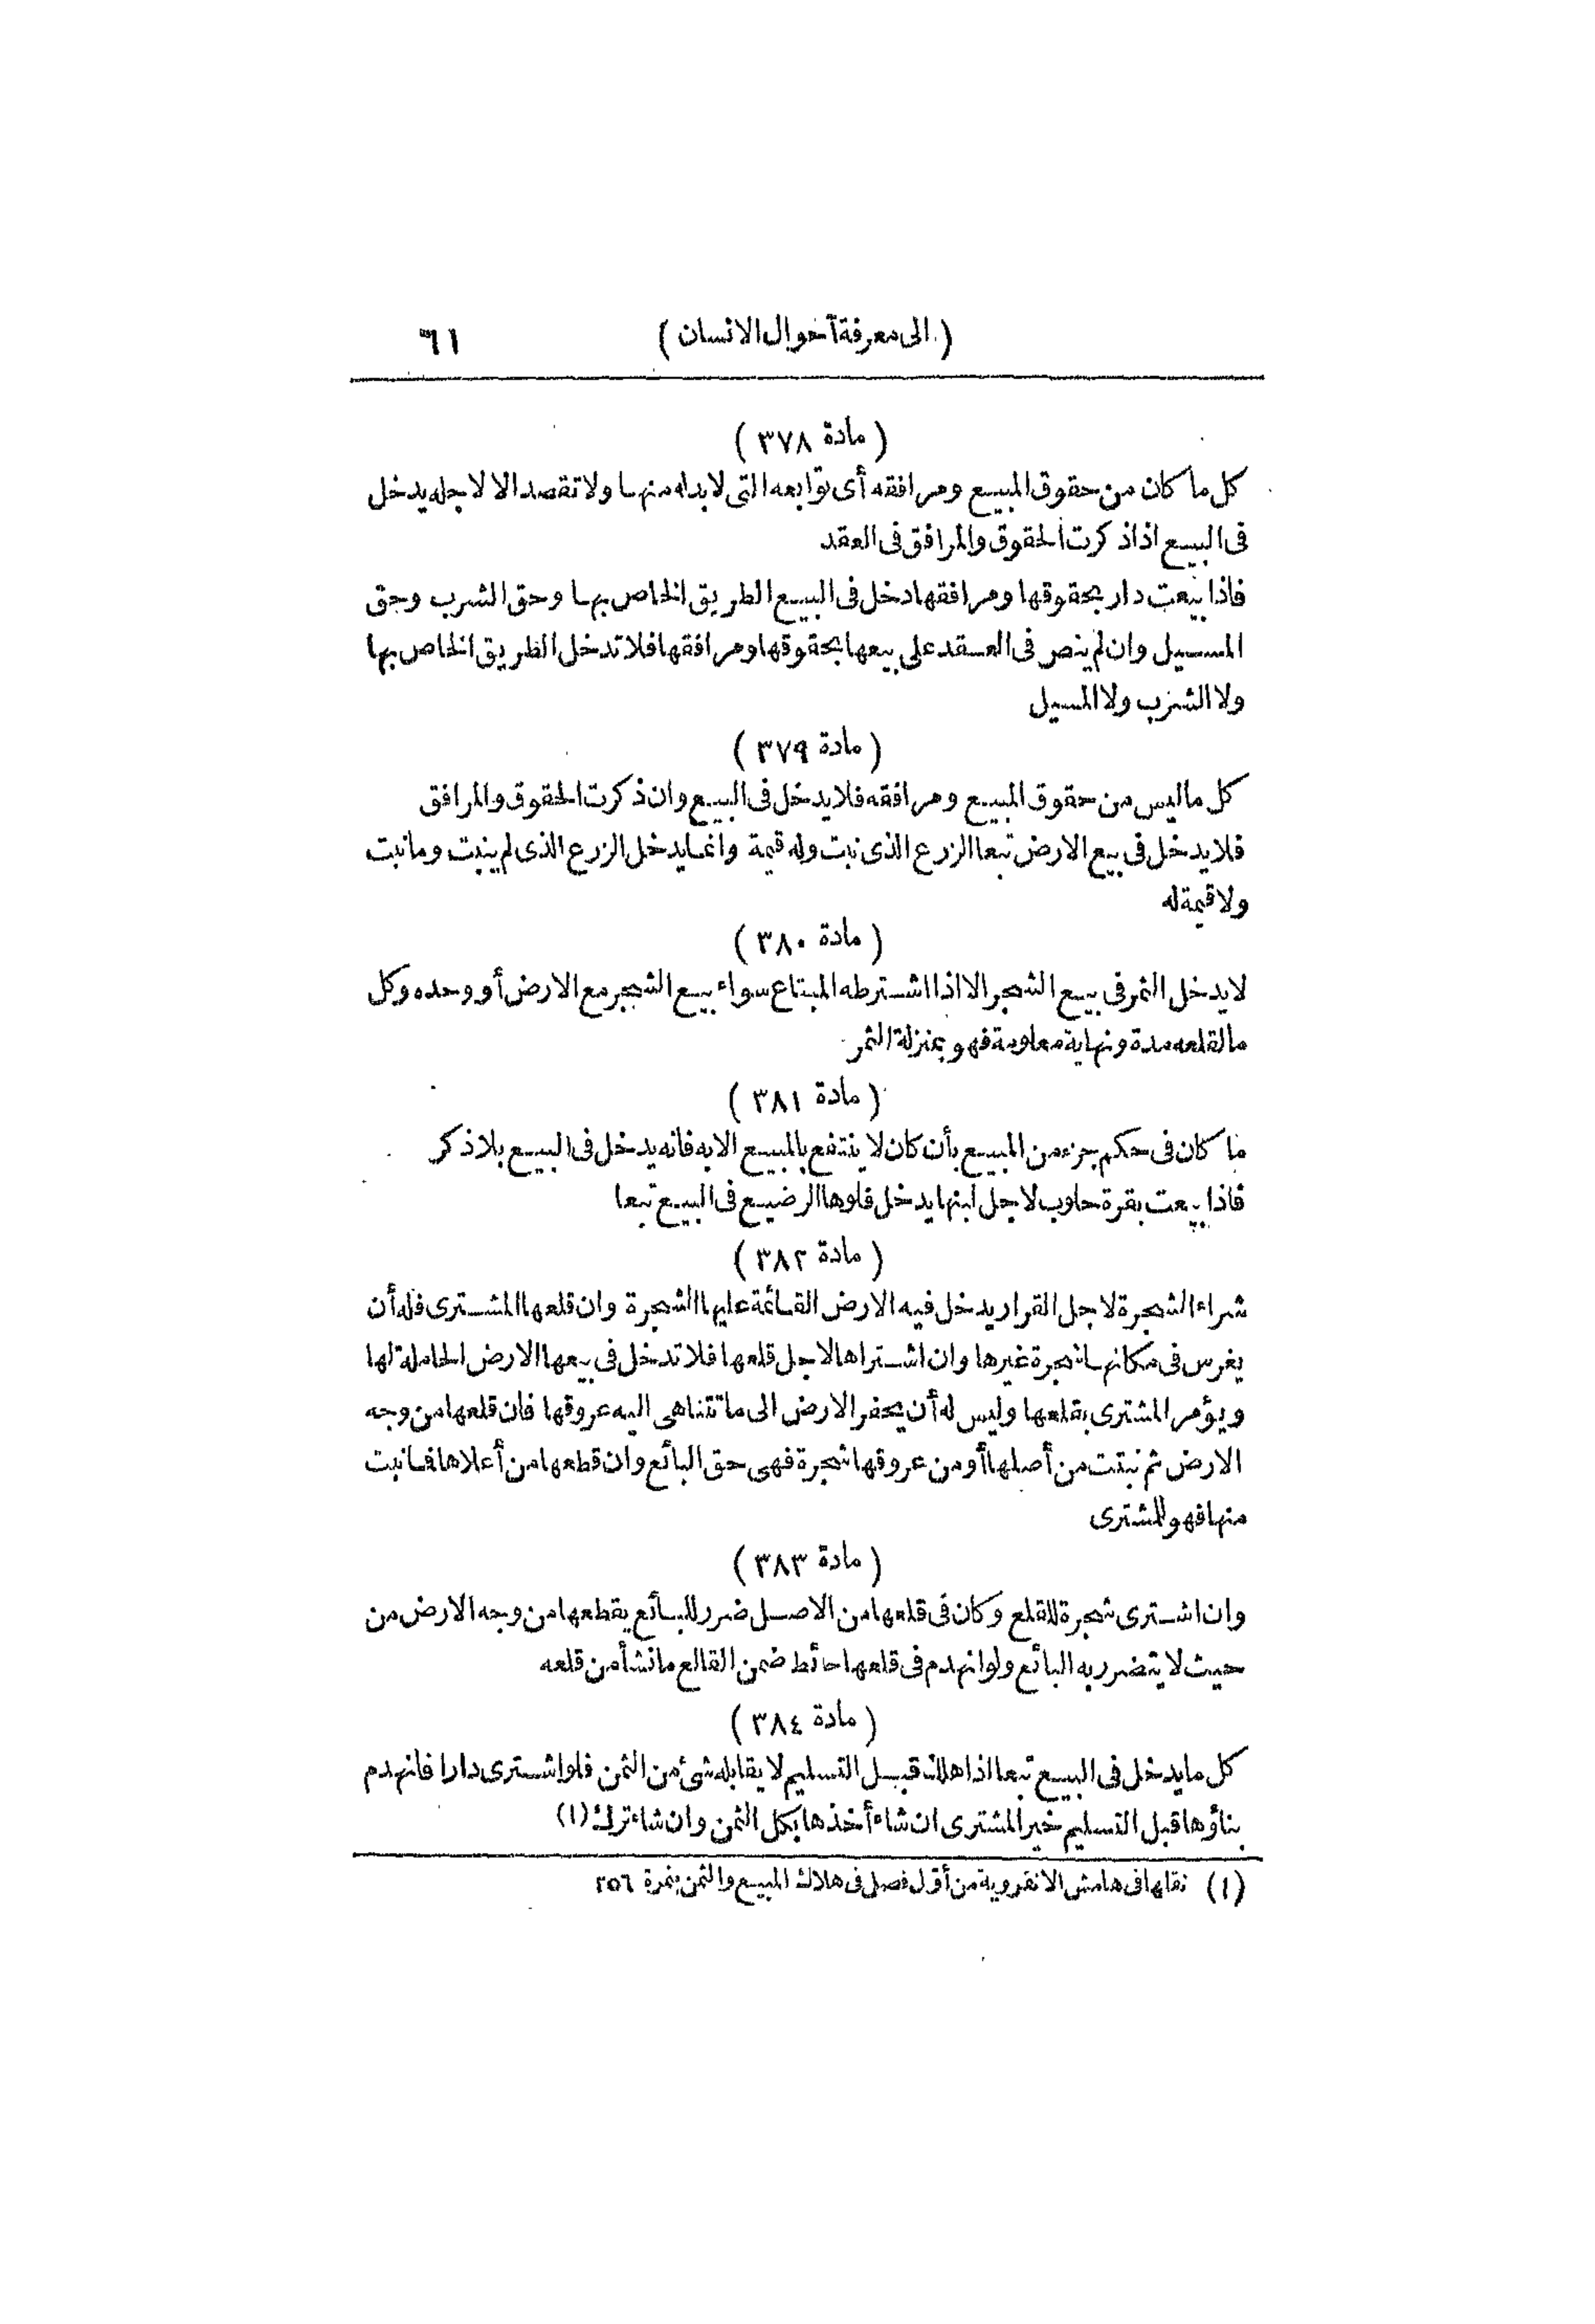 (الى معرفة أحوال الانسان) ٦١
(مادة ٣٧٨)
كل ما كان من حقوق المبيع ومرافقه أى توابعه التى لا بد له منها ولا تقصد الا لاجله يدخل
فى البيع اذا ذكرت الحقوق والمرافق فى العقد
فاذا بيعت دار بحقوقها ومرافقها دخل فى البيع الطريق الخاص بها وحق الشرب وحق
المسيل وان لم ينص فى العقد على بيعها بحقوقها ومرافقها فلا تدخل الطريق الخاص بها
ولا الشرب ولا المسيل
(مادة ٣٧٩)
كل ما ليس من حقوق المبيع ومرافقه فلا يدخل فى البيع وان ذكرت الحقوق والمرافق
فلا يدخل فى بيع الارض تبعا الزرع الذى نبت وله قيمة وانما يدخل الزرع الذى لم ينبت وما نبت
ولا قيمة له
(مادة ٣٨٠)
لا يدخل الثمر فى بيع الشجر الا اذا اشترطه المبتاع سواء بيع الشجر مع الارض أو وحده وكل
ما لقلعه مدة ونهاية معلومة فهو بمنزلة الثمر
(مادة ٣٨١)
ما كان فى حكم جزء من المبيع بأن كان لا ينتفع بالمبيع الا به فانه يدخل فى البيع بلا ذكر
فاذا بيعت بقرة حلوب لاجل لبنها يدخل فلوها الرضيع فى البيع تبعا
(مادة ٣٨٢)
شراء الشجرة لاجل القرار يدخل فيه الارض القائمة عليها الشجرة وان قلعها المشترى فله أن
يغرس فى مكانها شجرة غيرها وان اشتراها لاجل قلعها فلا تدخل فى بيعها الارض الحاملة لها
ويؤمر المشترى بقلعها وليس له أن يحفر الارض الى ما تتناهى اليه عروقها فان قلعها من وجه
الارض ثم نبتت من أصلها أو من عروقها شجرة فهى حق البائع وان قطعها من أعلاها فما نبت
منها فهو للمشترى
(مادة ٣٨٣)
وان اشترى شجرة للقلع وكان فى قلعها من الاصل ضرر للبائع يقطعها من وجه الارض من
حيث لا يتضرر به البائع ولو انهدم فى قلعها حائط ضمن القالع ما نشأ من قلعه
(مادة ٣٨٤)
كل ما يدخل فى البيع تبعا اذا هلك قبل التسليم لا يقابله شئ من الثمن فلو اشترى دارا فانهدم
بناؤها قبل التسليم خير المشترى ان شاء أخذها بكل الثمن وان شاء ترك (١)
(١) نقلها فى هامش الانقروية من أول فصل فى هلاك المبيع والثمن بنمرة ٢٥٦